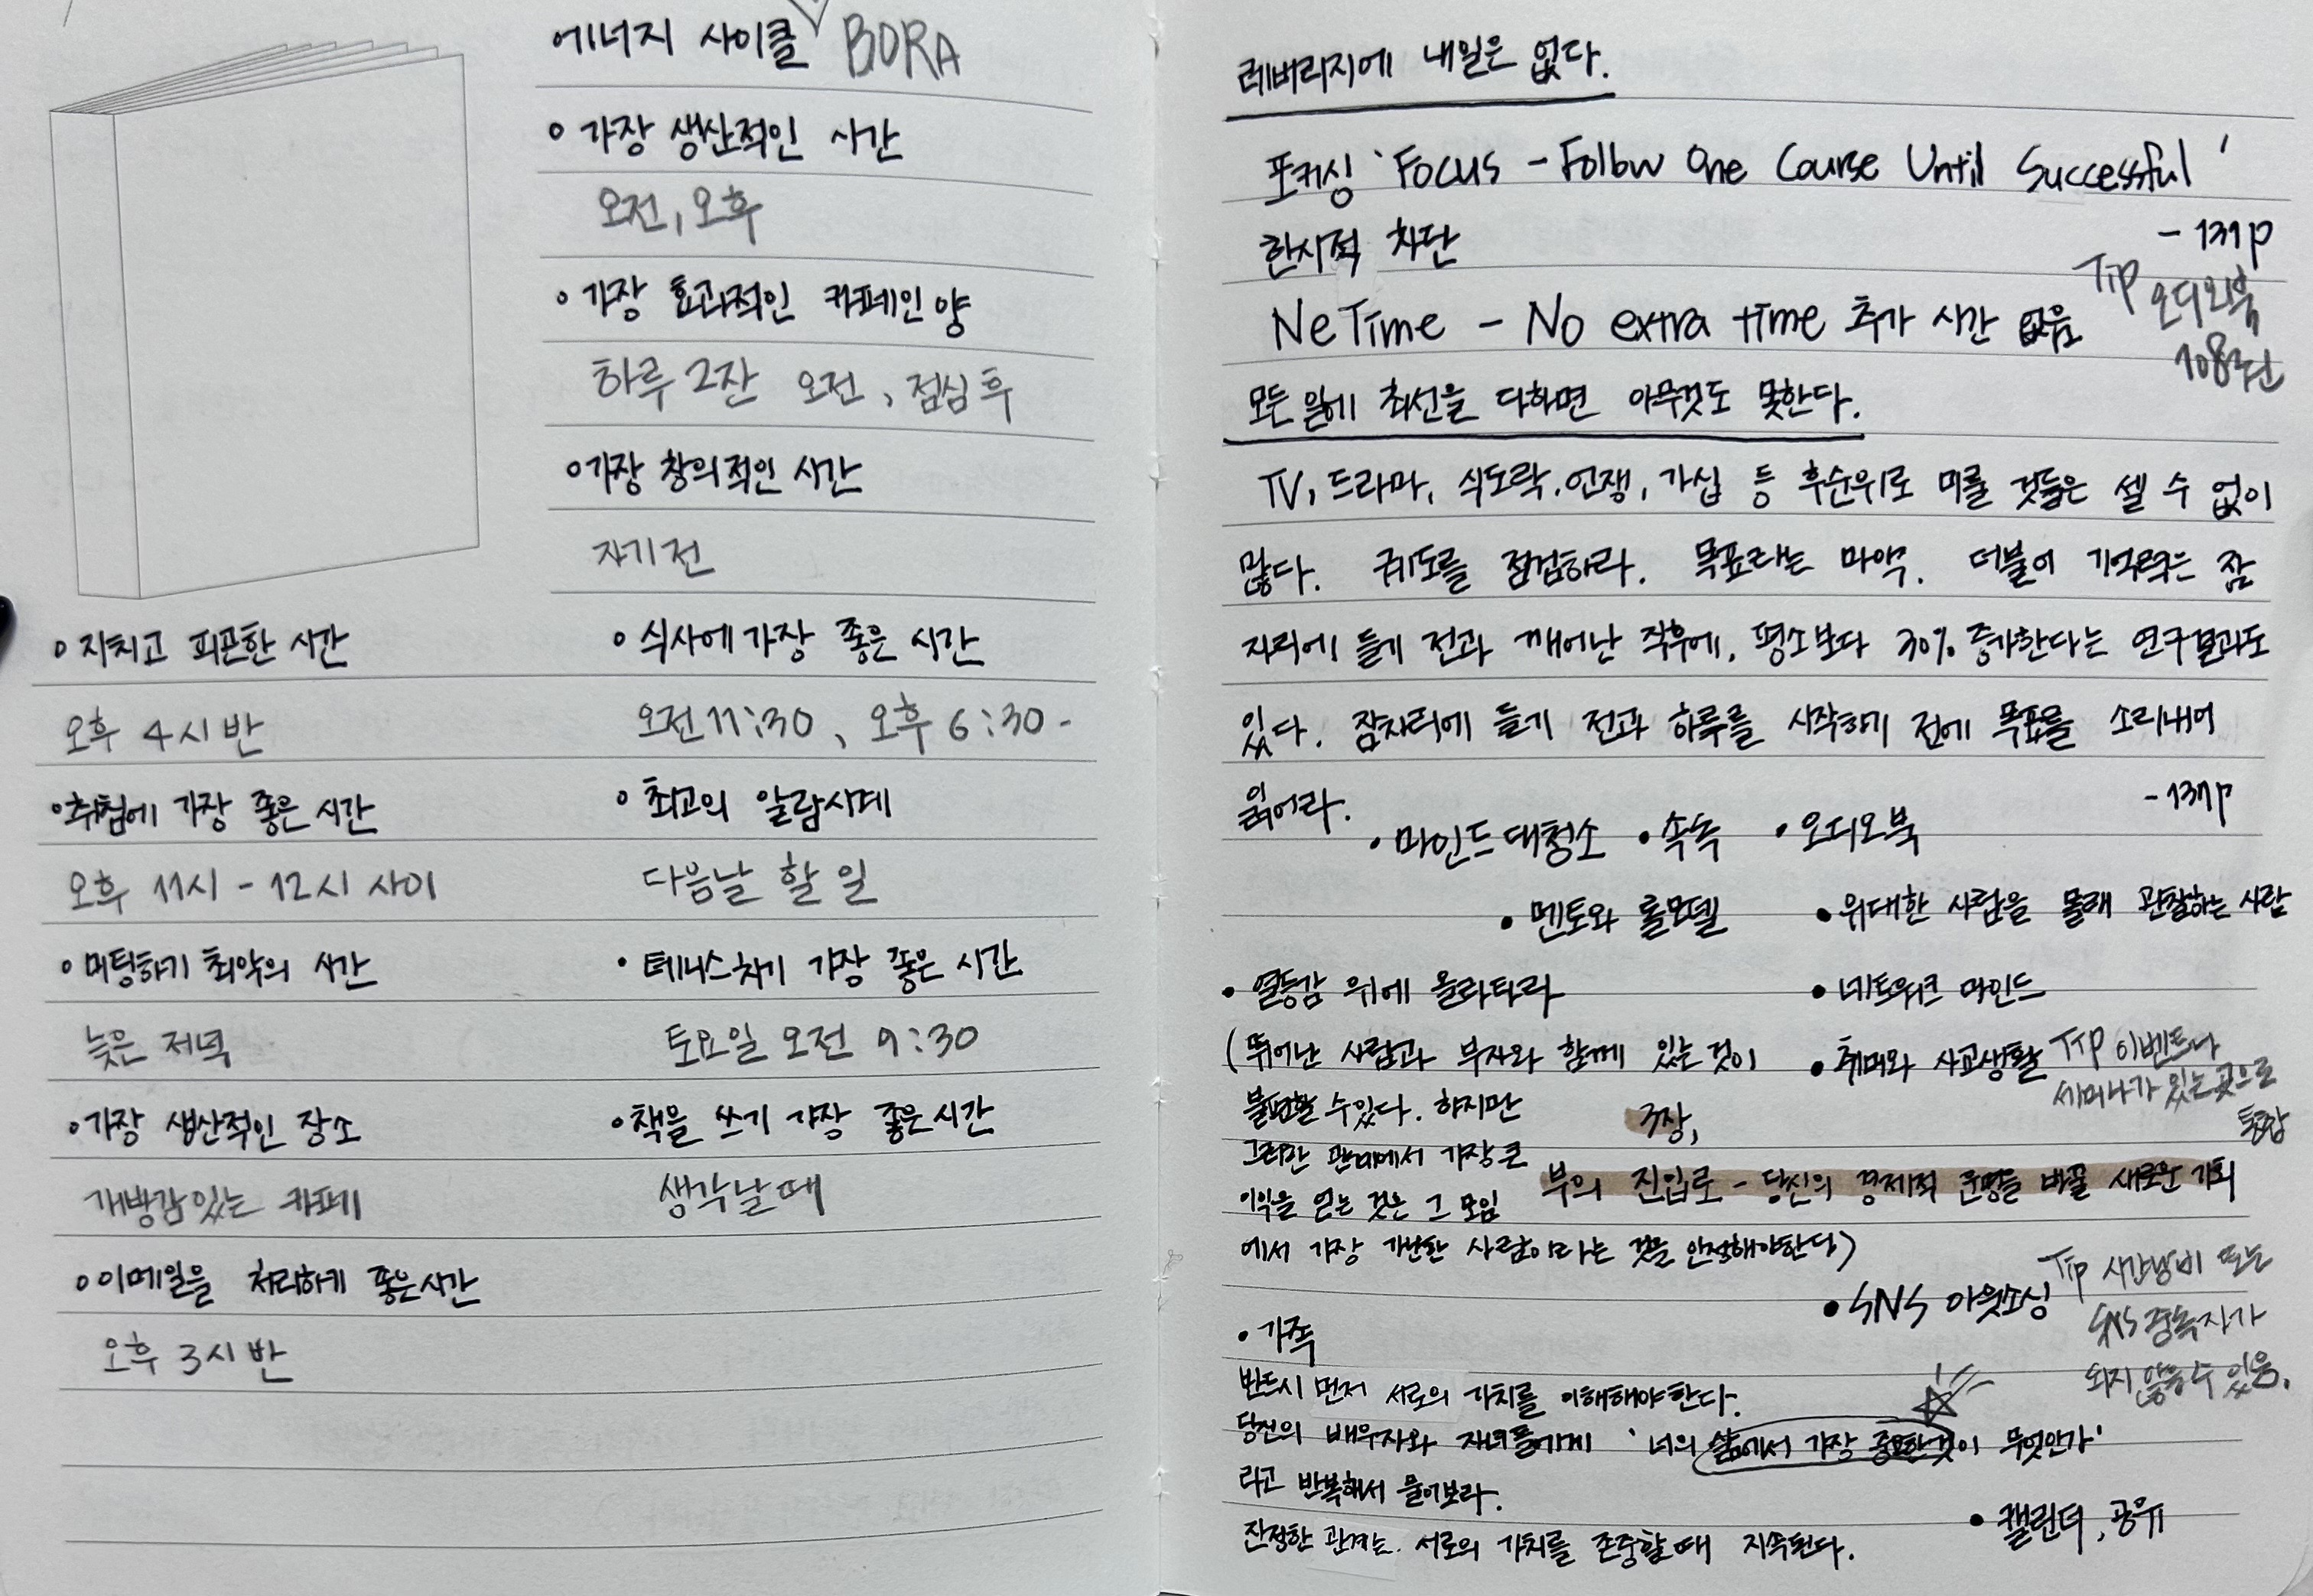 에너지 사이클 BORA
o 가장 생산적인 시간
오전, 오후
o 가장 효과적인 카페인 양
하루 2잔 오전, 점심 후
o 가장 창의적인 시간
자기 전
o 지치고 피곤한 시간
오후 4시 반
o 취침에 가장 좋은 시간
오후 11시 - 12시 사이
o 미팅하기 최악의 시간
늦은 저녁
o 가장 생산적인 장소
개방감있는 카페
o 이메일을 처리하기 좋은시간
오후 3시 반
o 식사에 가장 좋은 시간
오전 11:30, 오후 6:30-
o 최고의 알람시계
다음날 할 일
• 테니스치기 가장 좋은 시간
토요일 오전 9:30
o 책을 쓰기 가장 좋은 시간
생각날 때
레버리지에 내일은 없다.
포커싱 'Focus - Follow One Course Until Successful'
한시적 차단
- 131p
NeTime - No extra time 추가 시간 없음
Tip 오디오북
108권
모든 일에 최선을 다하면 아무것도 못한다.
TV, 드라마, 식도락, 언쟁, 가십 등 후순위로 미룰 것들은 셀 수 없이
많다. 궤도를 점검하라. 목표라는 마약. 더불어 기억력은 잠
자리에 들기 전과 깨어난 직후에, 평소보다 30% 증가한다는 연구결과도
있다. 잠자리에 들기 전과 하루를 시작하기 전에 목표를 소리내어
읽어라.
- 137p
• 마인드 대청소 • 속독 • 오디오북
• 멘토와 롤모델 • 위대한 사람을 몰래 관찰하는 사람
• 열등감 위에 올라타라
• 네트워크 마인드
(뛰어난 사람과 부자와 함께 있는 것이
불편할 수있다. 하지만
그러한 관계에서 가장 큰
이익을 얻는 것은 그 모임
에서 가장 가난한 사람이라는 것을 인정해야한다)
• 취미와 사교생활 Tip 이벤트나
세미나가 있는 곳으로
통합
3장,
부의 진입로 - 당신의 경제적 운명을 바꿀 새로운 기회
• SNS 아웃소싱 Tip 시간낭비 또는
SNS 중독자가
되지 않을 수 있음.
• 가족
반드시 먼저 서로의 가치를 이해해야 한다.
당신의 배우자와 자녀들에게 '너의 삶에서 가장 중요한것이 무엇인가'
라고 반복해서 물어보라.
진정한 관계는 서로의 가치를 존중할 때 지속된다.
• 캘린더, 공유